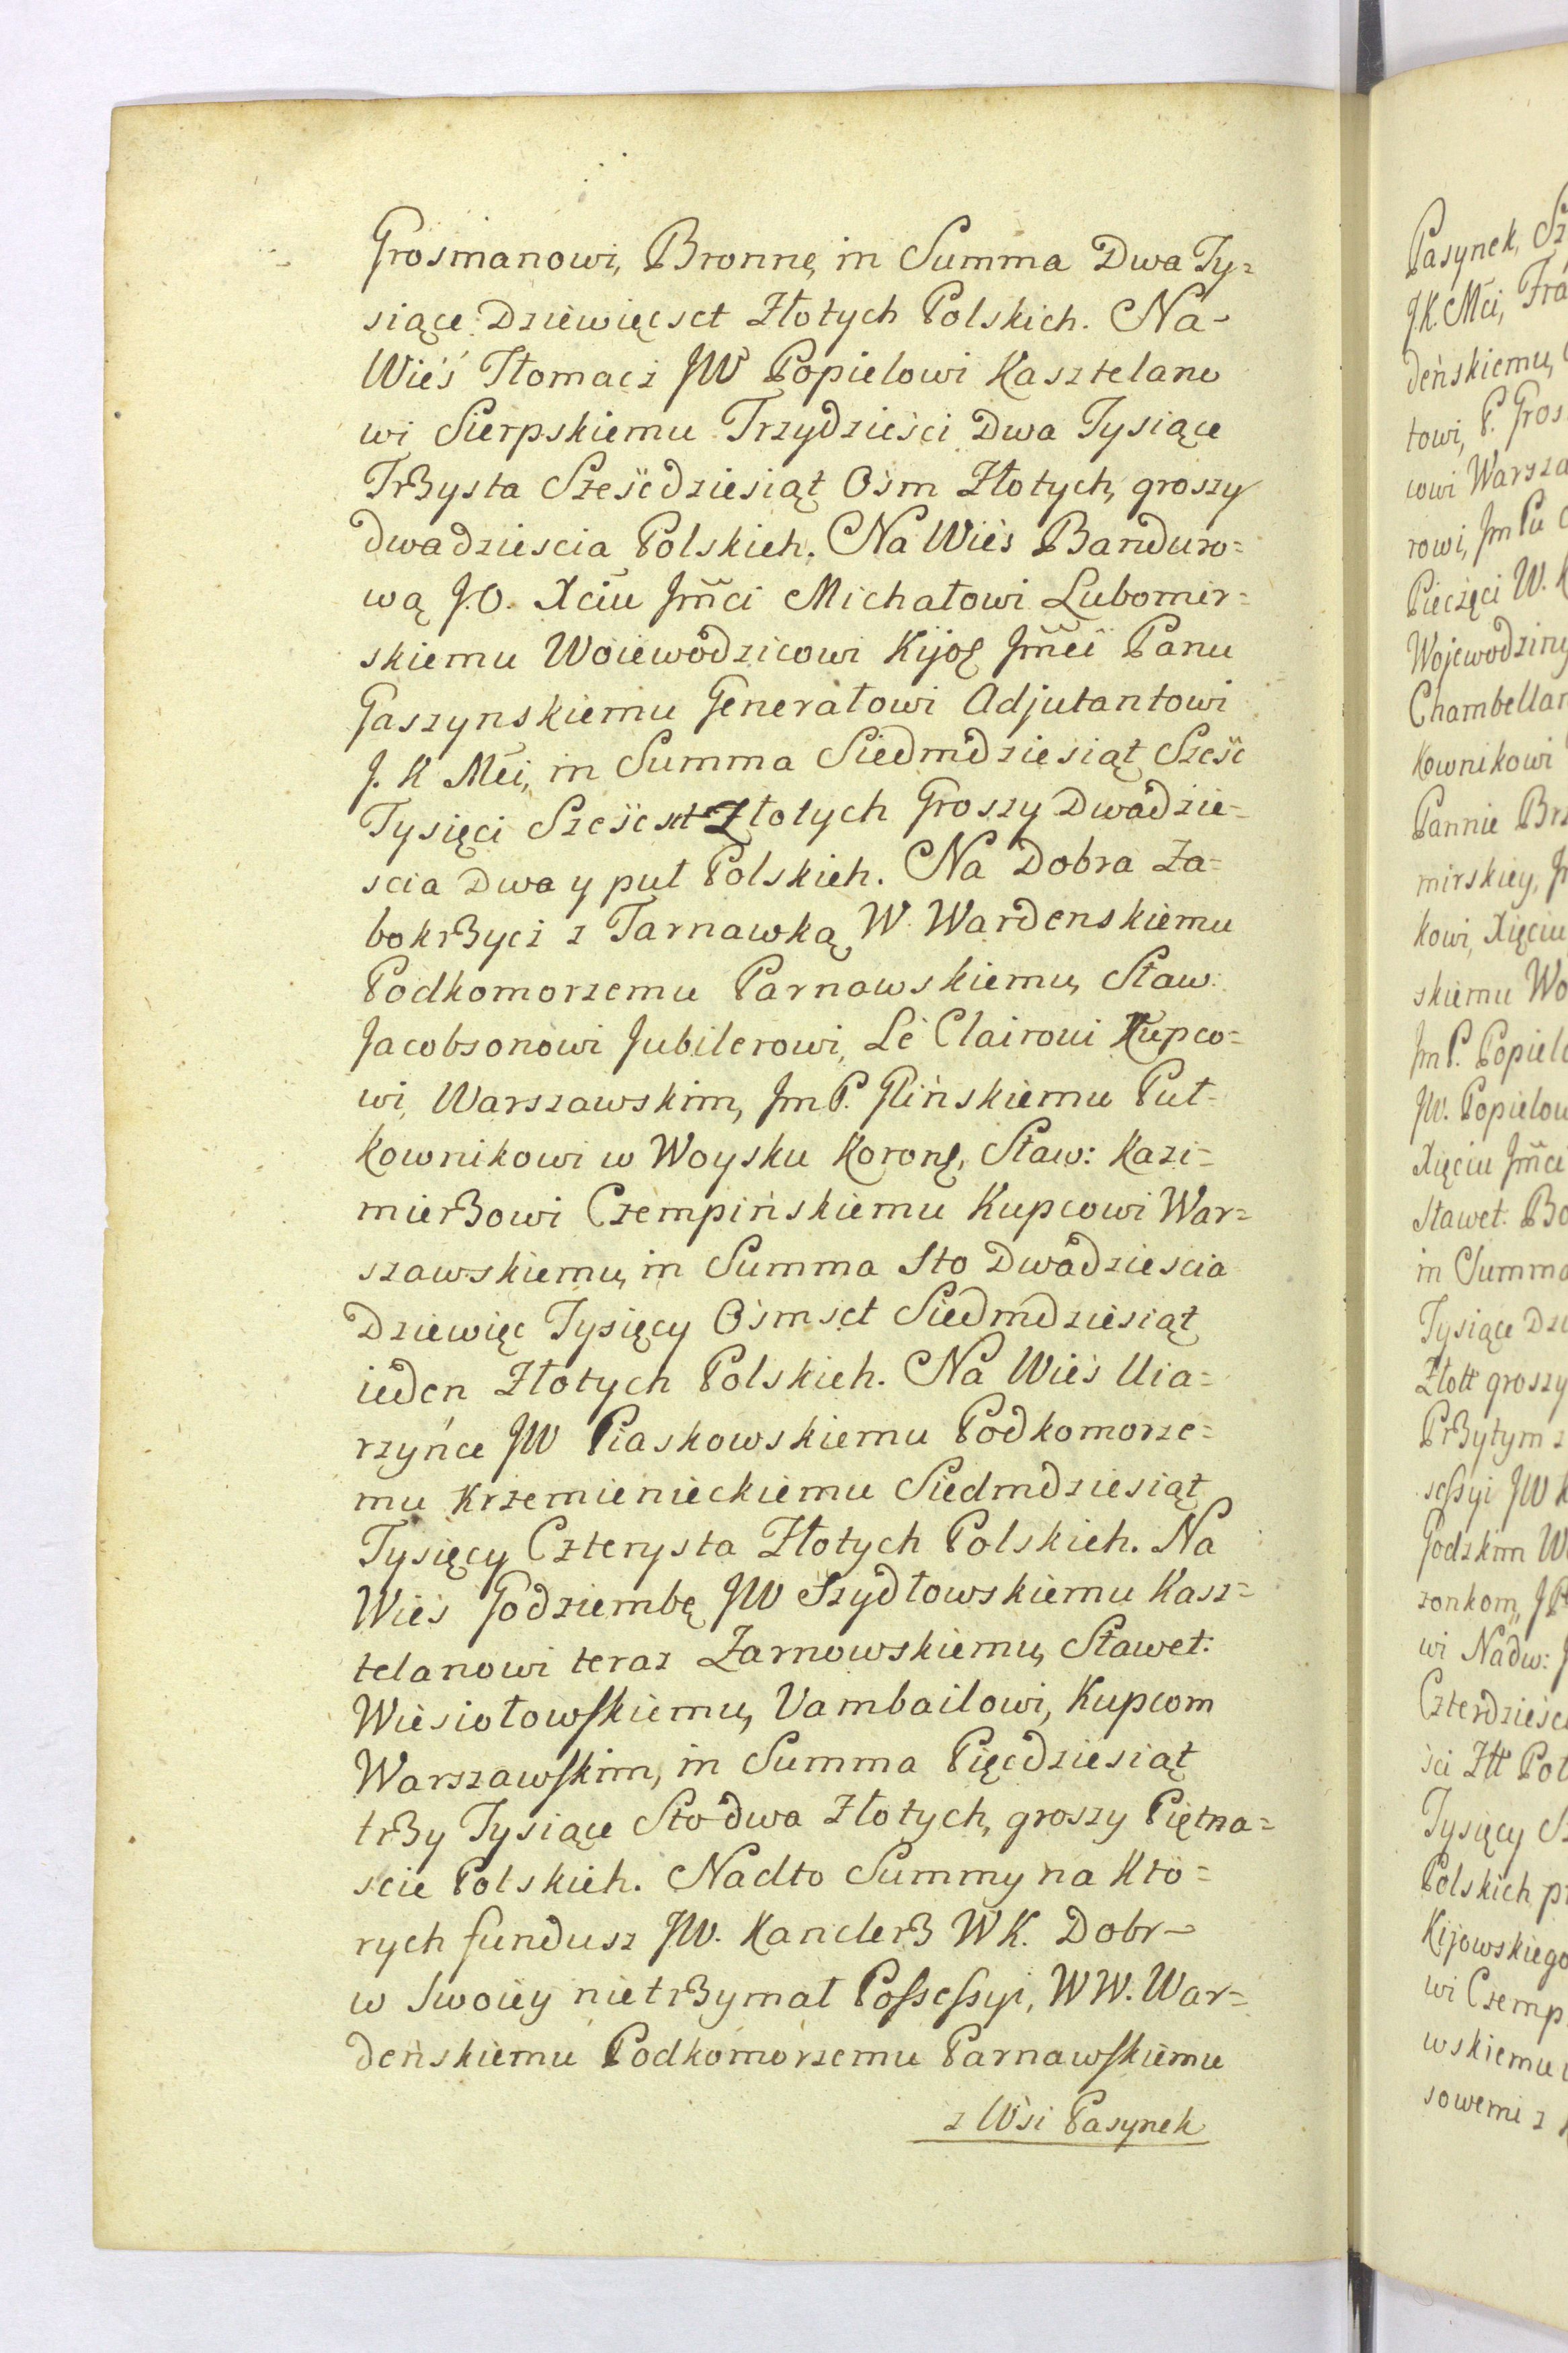 Grosmanowi, Bronnę, in Summa Dwa Ty=
siące Dziewięcset Złotych Polskich. Na
Wieś Tłomacz JW Popielowi Kasztelano
wi Sierpskiemu Trzydzieści Dwa Tysiące
Trzysta Sześćdziesiąt Ośm Złotych, groszy
dwadziescia Polskich. Na Wieś Banduro=
wą J.O. Xciu Jmci Michałowi Lubomir=
skiemu Woiewodzicowi Kijoę Jmci Panu
Gaszynskiemu Generałowi Adjutantowi
J. K Mci, in Summa Siedmdziesiąt Sześć
Tysięci Sześćset Złotych Groszy Dwadzie=
scia Dwa y puł Polskich. Na Dobra Za=
bokrzycz z Tarnawką W. Wardenskiemu
Podkomorzemu Parnawskiemu, Sław:
Jacobsonowi Jubilerowi, Lé Clairowi Kupco=
wi, Warszawskim, Jm P. Glińskiemu Puł=
kownikowi w Woysku Koronę, Sław: Kazi=
mierzowi Czempińskiemu Kupcowi War=
szawskiemu, in Summa Sto Dwadziescia
Dziewięc Tysięcy Ośmset Siedmdziesiąt
ieden Złotych Polskich. Na Wieś Uia=
rzyńce JW Piaskowskiemu Podkomorze=
mu Krzemienieckiemu Siedmdziesiąt
Tysięcy Czterysta Złotych Polskich. Na
Wieś Godziembę JW Szydłowskiemu Kasz=
telanowi teraz Żarnowskiemu, Sławet:
Wiesiołowskiemu, Vambailowi, Kupcom
Warszawskim, in Summa Pięcdziesiąt
trzy Tysiące Sto dwa Złotych, groszy Piętna=
scie Polskich. Nadto Summy na któ=
rych fundusz JW. Kanclerz WK. Dobr
w Swoiey nietrzymał Possessyi, WW. War=
deńskiemu Podkomorzemu Parnawskiemu
z Wsi Pasynek
Pasynek,
J.K. Mci,
deńskiemu,
towi, P. Gros
wi Warsza
rowi, Jm Pu
Pieczęci W.
Wojewodziny
Chambellan
kownikowi
Pannie Brz
mirskiey,
kowi, Xięciu
skiemu Wo
Jm P. Popiel
JW. Popielow
Xięciu Jmci
Sławet: Bo
in Summa
Tysiące Dzi
Złott groszy
Przytym z
sessyi JW
Godzkim W
zonkom,
wi Nadw:
Czterdzieści
ści Złł Pol
Tysięcy
Polskich
Kijowskiego
wi Czemp
wskiemu
sowemi z